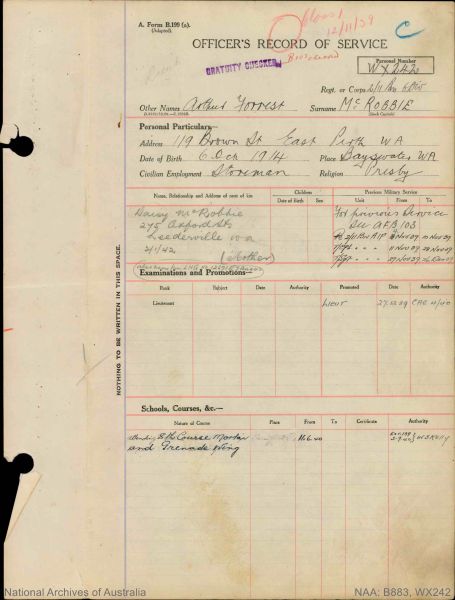 A. Form B.199 (a).
(Adapted)
12/11/39
C
OFFICER'S RECORD OF SERVICE
GRATUITY CHECKED
Personal Number
WX242
Regt. or Corps 2/11 Bn
Other Names Arthur Forrest Surname McROBBIE
(Block Capitals)
Personal Particulars—
Address 119 Brown St East Perth WA
Date of Birth 6 Oct 1914 Place Bayswater WA
Civilian Employment Storeman Religion Presby
Name, Relationship and Address of next of kin
Children
Date of Birth Sex
Previous Military Service
Unit From To
Daisy McRobbie
275 Oxford St
Leederville W A
2/1/42
(Mother)
For previous Service
See AFB 103
Examinations and Promotions—
Rank Subject Date Authority Promoted Date Authority
Lieutenant
LIEUT 27.12.39
Schools, Courses, &c.—
Nature of Course Place From To Certificate Authority
8th Course Mortar 11.6.40
and Grenade Wing
NOTHING TO BE WRITTEN IN THIS SPACE.
National Archives of Australia
NAA: B883, WX242